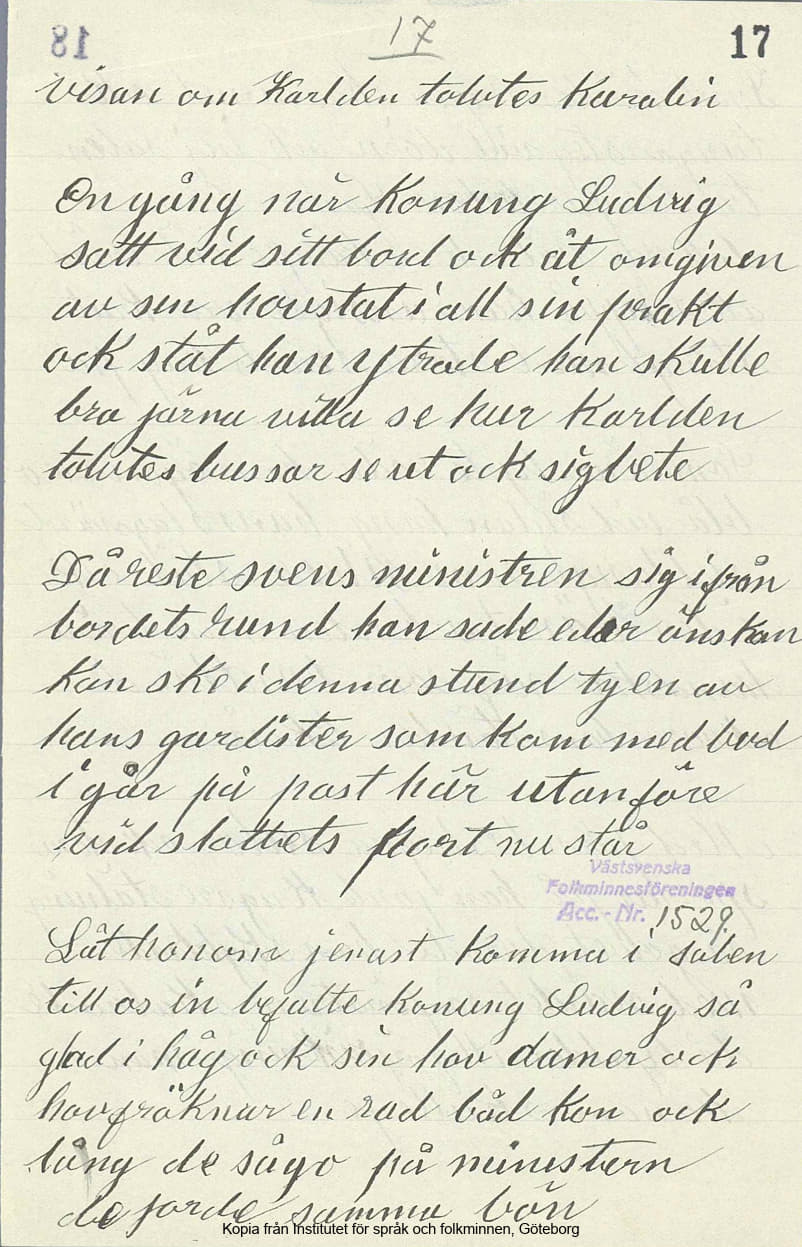 18
17
17
visan om Karl den tolvtes Karabin
En gång när Konung Ludvig
satt vid sitt bord ock åt omgiven
av sin hovstat i all sin prakt
ock ståt han yttrade han skulle
bra järna villa se hur Karl den
tolvtes bussar se ut ock sig bete
Då reste svens ministren sig ifrån
bordets rund han sade eder önskan
kan ske i denna stund ty en av
hans gardister som kom med bud
i går på post här utanföre
vid slottets port nu står
Västsvenska
Folkminnesföreningen
Acc.-Nr. 1529.
Låt honom jenast komma i salen
till os in befalte Konung Ludvig så
glad i håg ock sin hov damer ock
hovfröknar en rad båd kon ock
lång de sågo på ministern
de jorde samma bön
Kopia från Institutet för språk och folkminnen, Göteborg